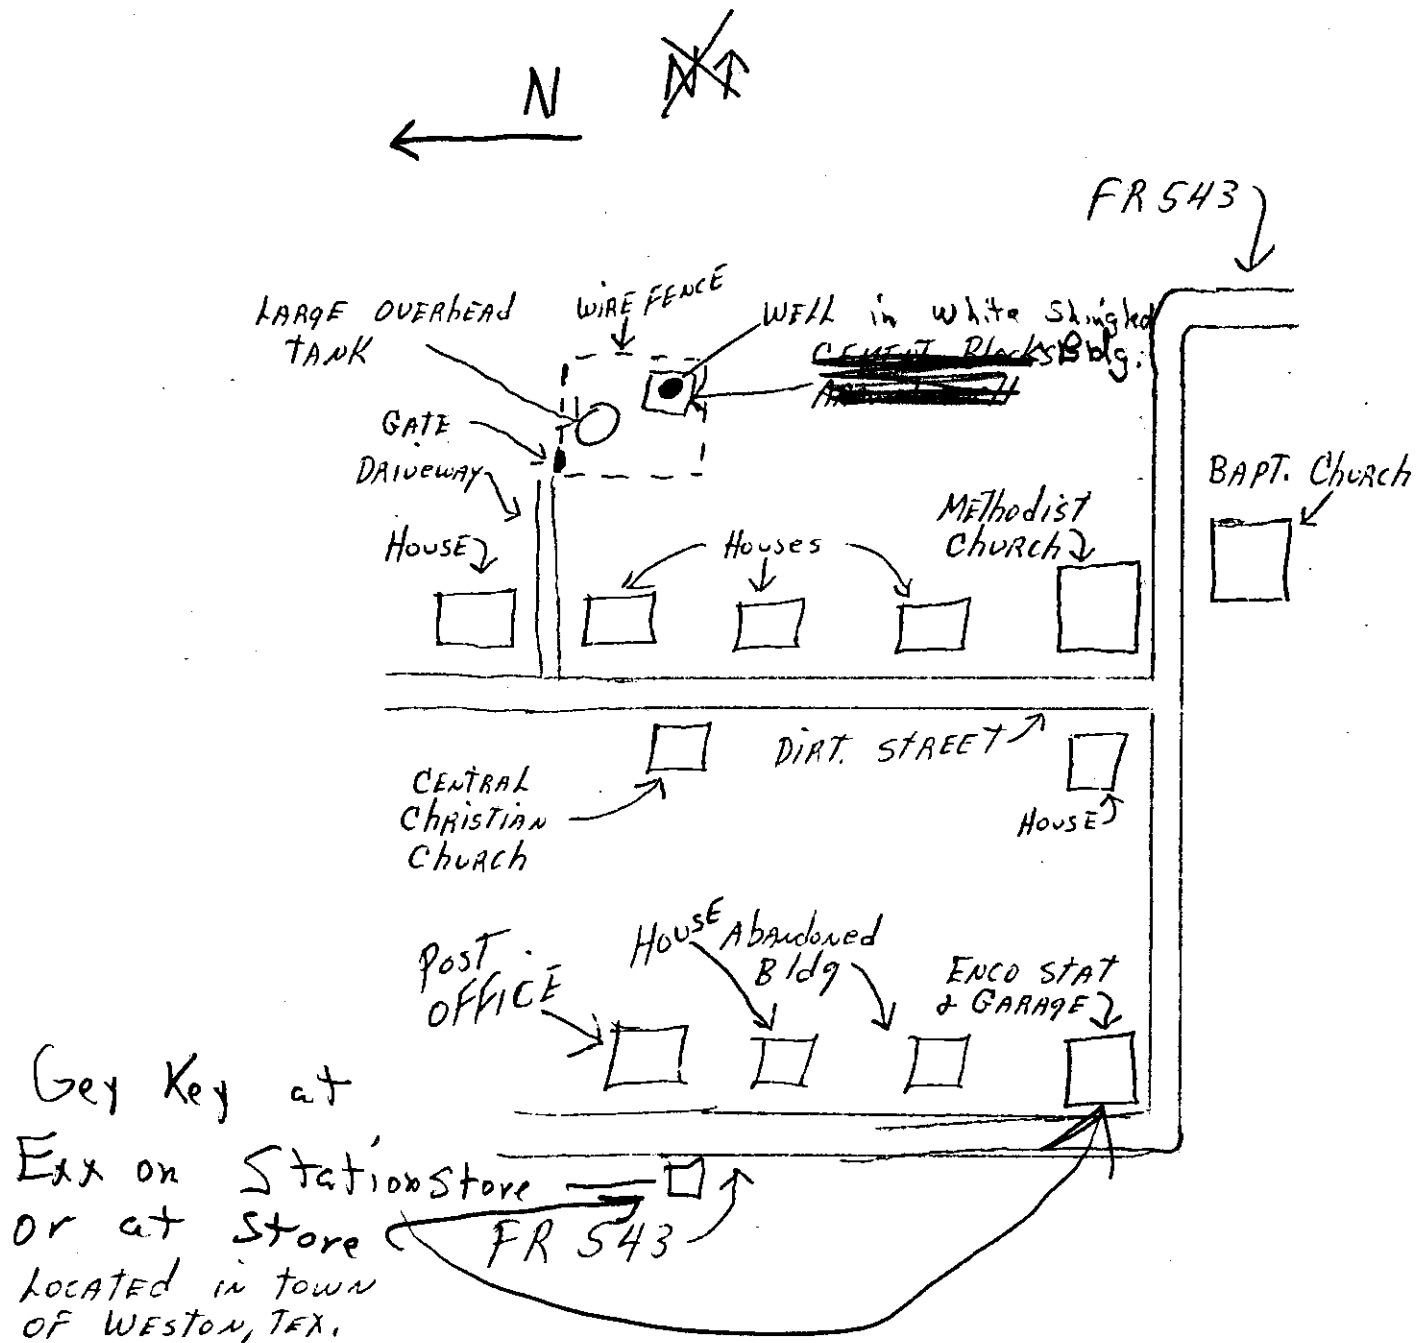 N
N
FR 543
LARGE OVERHEAD
TANK
WIRE FENCE
WELL in white Shingled
CEMENT Blocks Bldg.
GATE
DRIVEWAY
HOUSE
Houses
METhodist
ChURCH
BAPT. ChURCH
DIRT. STREET
CENTRAL
ChRISTIAN
ChURCh
HOUSE
POST
OFFICE
HOUSE
Abandoned
Bldg
ENCO STAT
& GARAGE
Gey Key at
Exx on Station Store
or at Store
FR 543
LOCATED IN TOWN
OF WESTON, TEX.